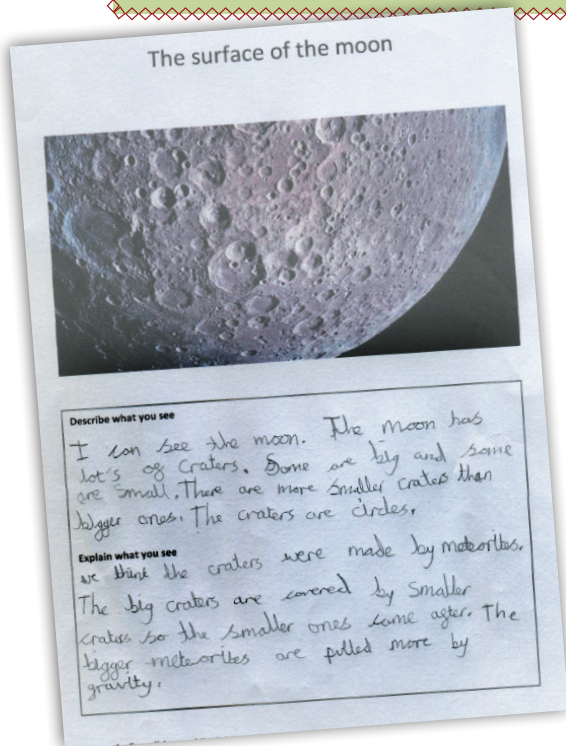 The surface of the moon
Describe what you see
I can see the moon. The moon has
lot's of craters. Some are big and some
are small. There are more smaller craters than
bigger ones. The craters are circles.
Explain what you see
we think the craters were made by meteorites.
The big craters are covered by smaller
craters so the smaller ones came after. The
bigger meteorites are pulled more by
gravity.